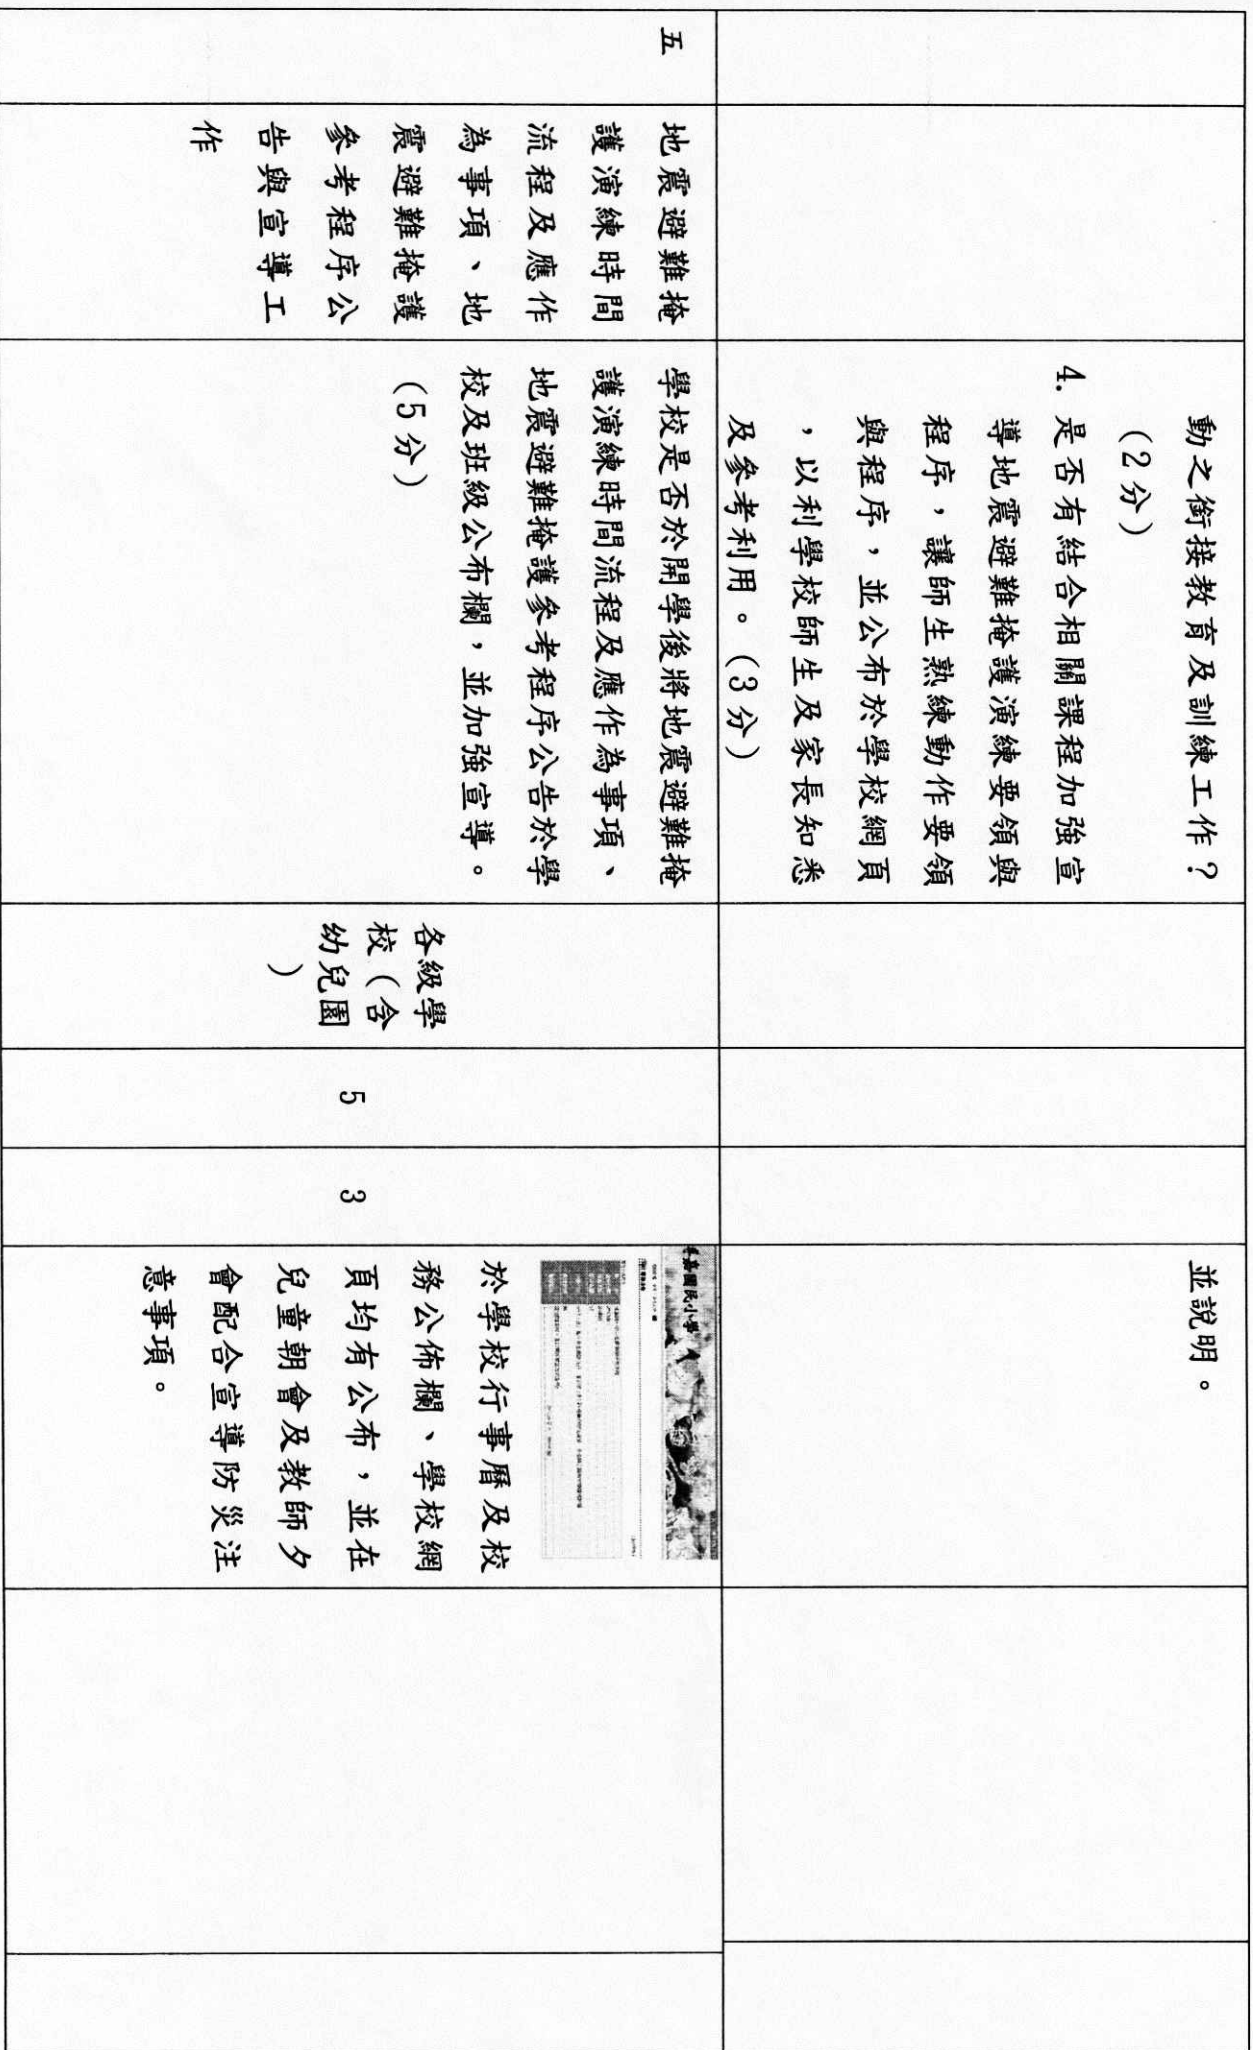 動之銜接教育及訓練工作？
（2分）
4. 是否有結合相關課程加強宣
導地震避難掩護演練要領與
程序，讓師生熟練動作要領
與程序，並公布於學校網頁
，以利學校師生及家長知悉
及參考利用。（3分）
並說明。
五
地震避難掩
護演練時間
流程及應作
為事項、地
震避難掩護
參考程序公
告與宣導工
作
學校是否於開學後將地震避難掩
護演練時間流程及應作為事項、
地震避難掩護參考程序公告於學
校及班級公布欄，並加強宣導。
（5分）
各級學
校（含
幼兒園
）
5
3
嘉國民小學
於學校行事曆及校
務公佈欄、學校網
頁均有公布，並在
兒童朝會及教師夕
會配合宣導防災注
意事項。